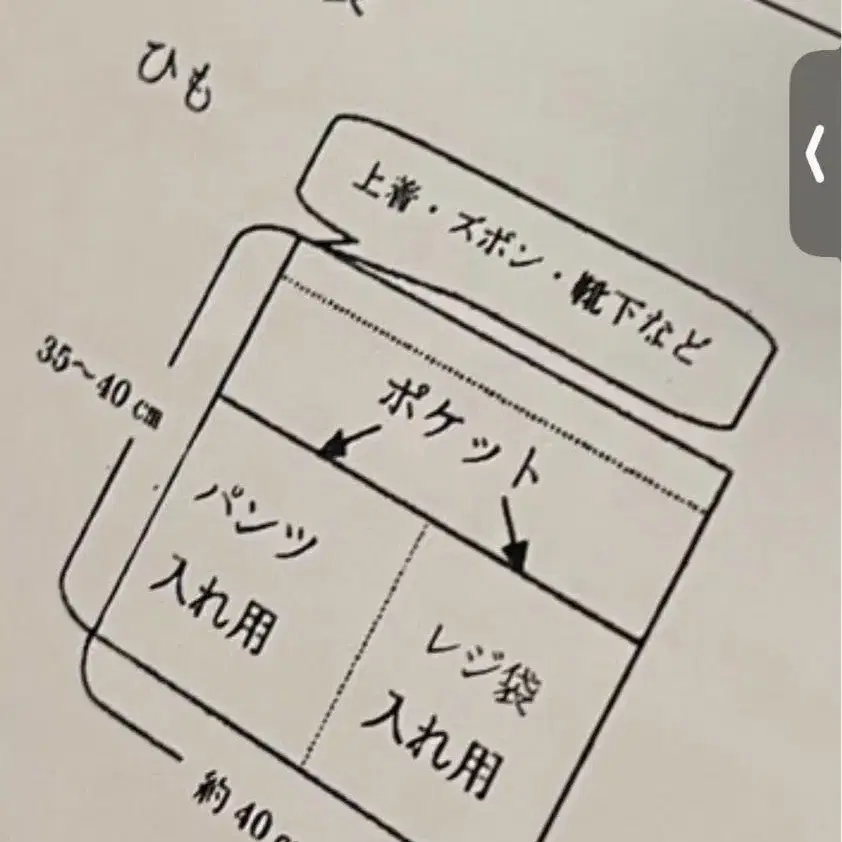 ひも
上着・ズボン・靴下など
35〜40㎝
ポケット
パンツ
入れ用
レジ袋
入れ用
約40